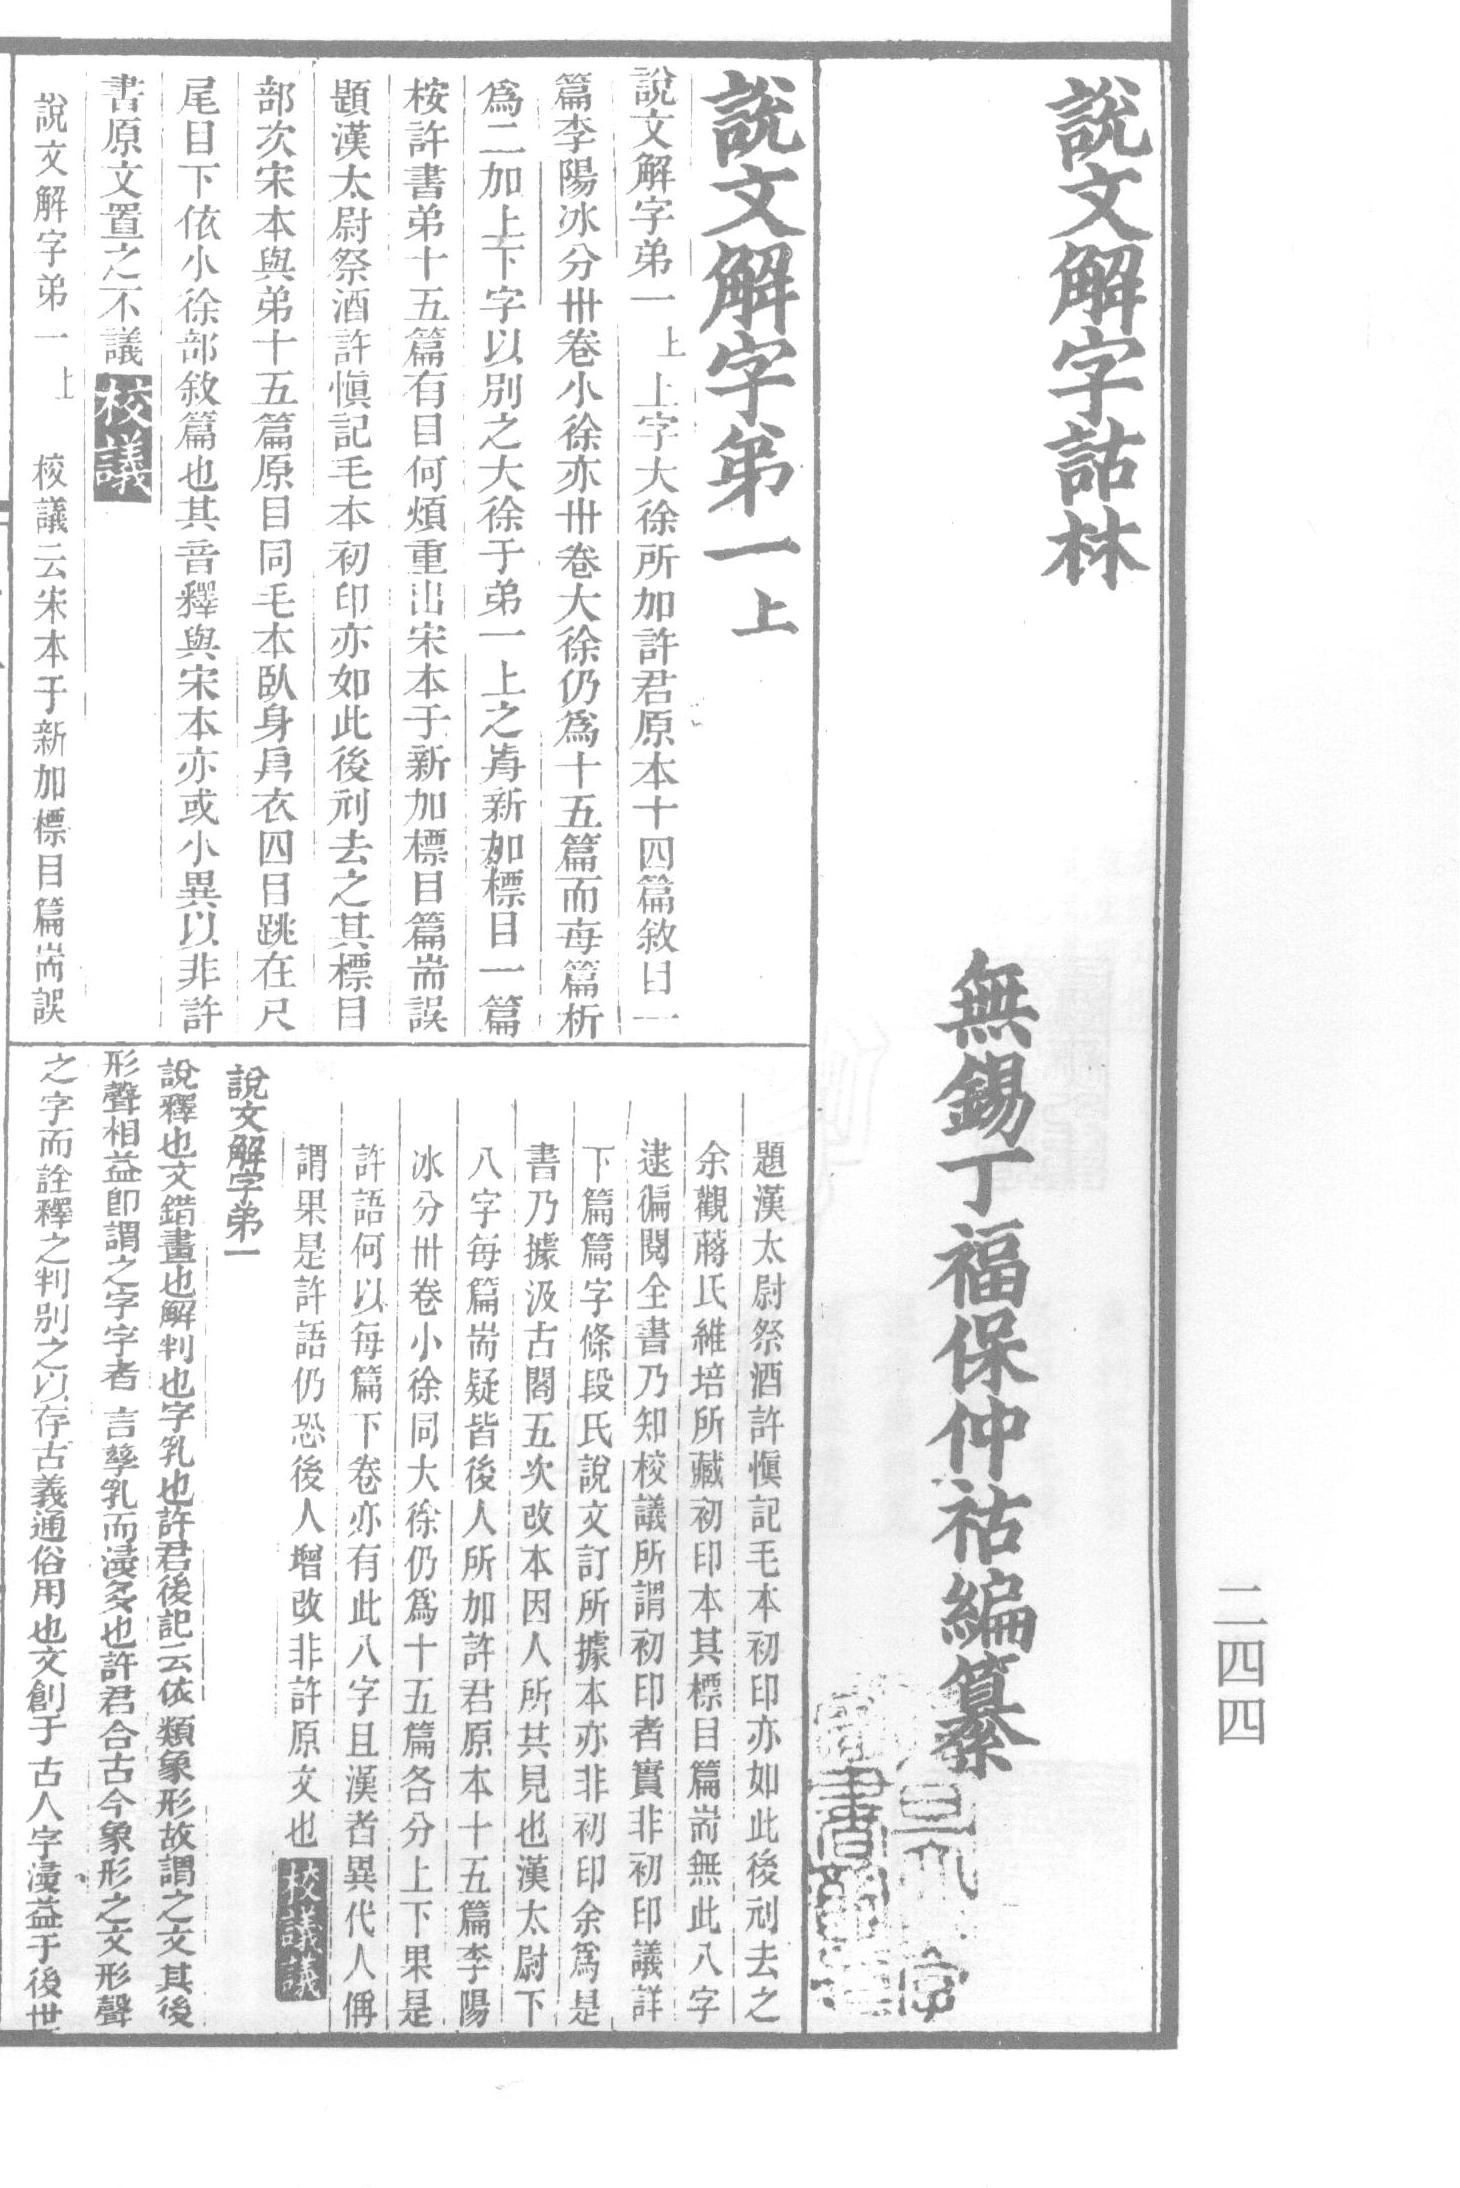 說文解字詁林
無錫丁福保仲祜編纂
說文解字弟一上
說文解字弟一上　上字大徐所加許君原本十四篇敘目一
篇李陽冰分卅卷小徐亦卅卷大徐仍爲十五篇而每篇析
爲二加上下字以別之大徐于弟一上之歬新加標目一篇
桉許書弟十五篇有目何煩重出宋本于新加標目篇耑誤
題漢太尉祭酒許愼記毛本初印亦如此後刓去之其標目
部次宋本與弟十五篇原目同毛本臥身㐆衣四目跳在尺
尾目下依小徐部敘篇也其音釋與宋本亦或小異以非許
書原文置之不議校議
說文解字弟一上　校議云宋本于新加標目篇耑誤
題漢太尉祭酒許愼記毛本初印亦如此後刓去之
余觀蔣氏維培所藏初印本其標目篇耑無此八字
逮徧閱全書乃知校議所謂初印者實非初印議詳
下篇篇字條段氏說文訂所據本亦非初印余爲是
書乃據汲古閣五次改本因人所共見也漢太尉下
八字每篇耑疑皆後人所加許君原本十五篇李陽
冰分卅卷小徐同大徐仍爲十五篇各分上下果是
許語何以每篇下卷亦有此八字且漢者異代人偁
謂果是許語仍恐後人增改非許原文也校議議
說文解字弟一
說釋也文錯畫也解判也字乳也許君後記云依類象形故謂之文其後
形聲相益卽謂之字字者言孳乳而浸多也許君合古今象形之文形聲
之字而詮釋之判別之以存古義通俗用也文創于古人字浸益于後世
二四四